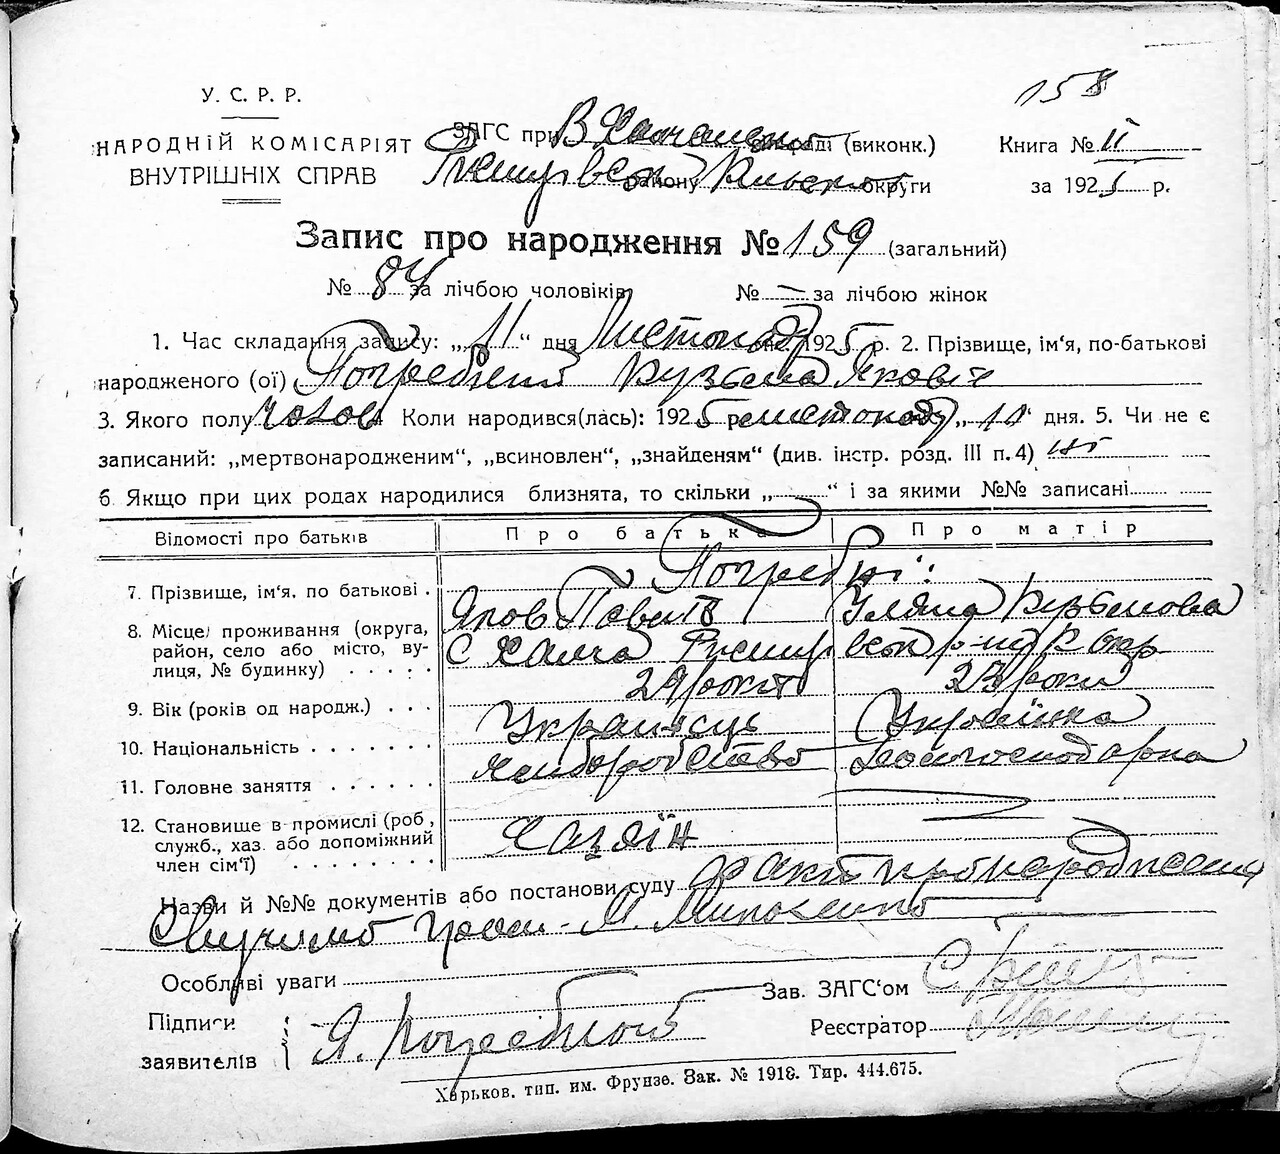 158
У. С. Р. Р.
НАРОДНІЙ КОМІСАРІЯТ
ВНУТРІШНІХ СПРАВ
ЗАГС при В раді (виконк.)
району округи
Книга № II
за 1925 р.
Запис про народження № 159 (загальний)
№ 84 за лічбою чоловіків № — за лічбою жінок
1. Час складання запису: „11“ дня Листопада 1925 р. 2. Прізвище, ім'я, по-батькові
народженого (ої) Погребний Кузьма Якович
3. Якого полу чолов Коли народився(лась): 1925 р листопаду „11“ дня. 5. Чи не є
записаний: „мертвонародженим“, „всиновлен“, „знайденям“ (див. інстр. розд. III п. 4) ні
6. Якщо при цих родах народилися близнята, то скільки „ “ і за якими №№ записані
Відомості про батьків Про батька Про матір
Погребні:
7. Прізвище, ім'я, по батькові . Яков Уляна Кузьмова
8. Місце проживання (округа, район, село або місто, вулиця, № будинку) С Халча
9. Вік (років од народж.) . . . 29 років 23 роки
10. Національність . . . . . . . Украинець Украінка
11. Головне заняття . . . . . . хліборобство домогосподарка
12. Становище в промислі (роб., служб., хаз. або допоміжний член сім'ї) . . . . . . . . Хазяїн
Назви й №№ документів або постанови суду факт про народження
М.
Особливі уваги
Підписи
заявителів Я. Погребной
Зав. ЗАГС'ом
Реєстратор
Харьков. тип. им. Фрунзе. Зак. № 1918. Тир. 444.675.